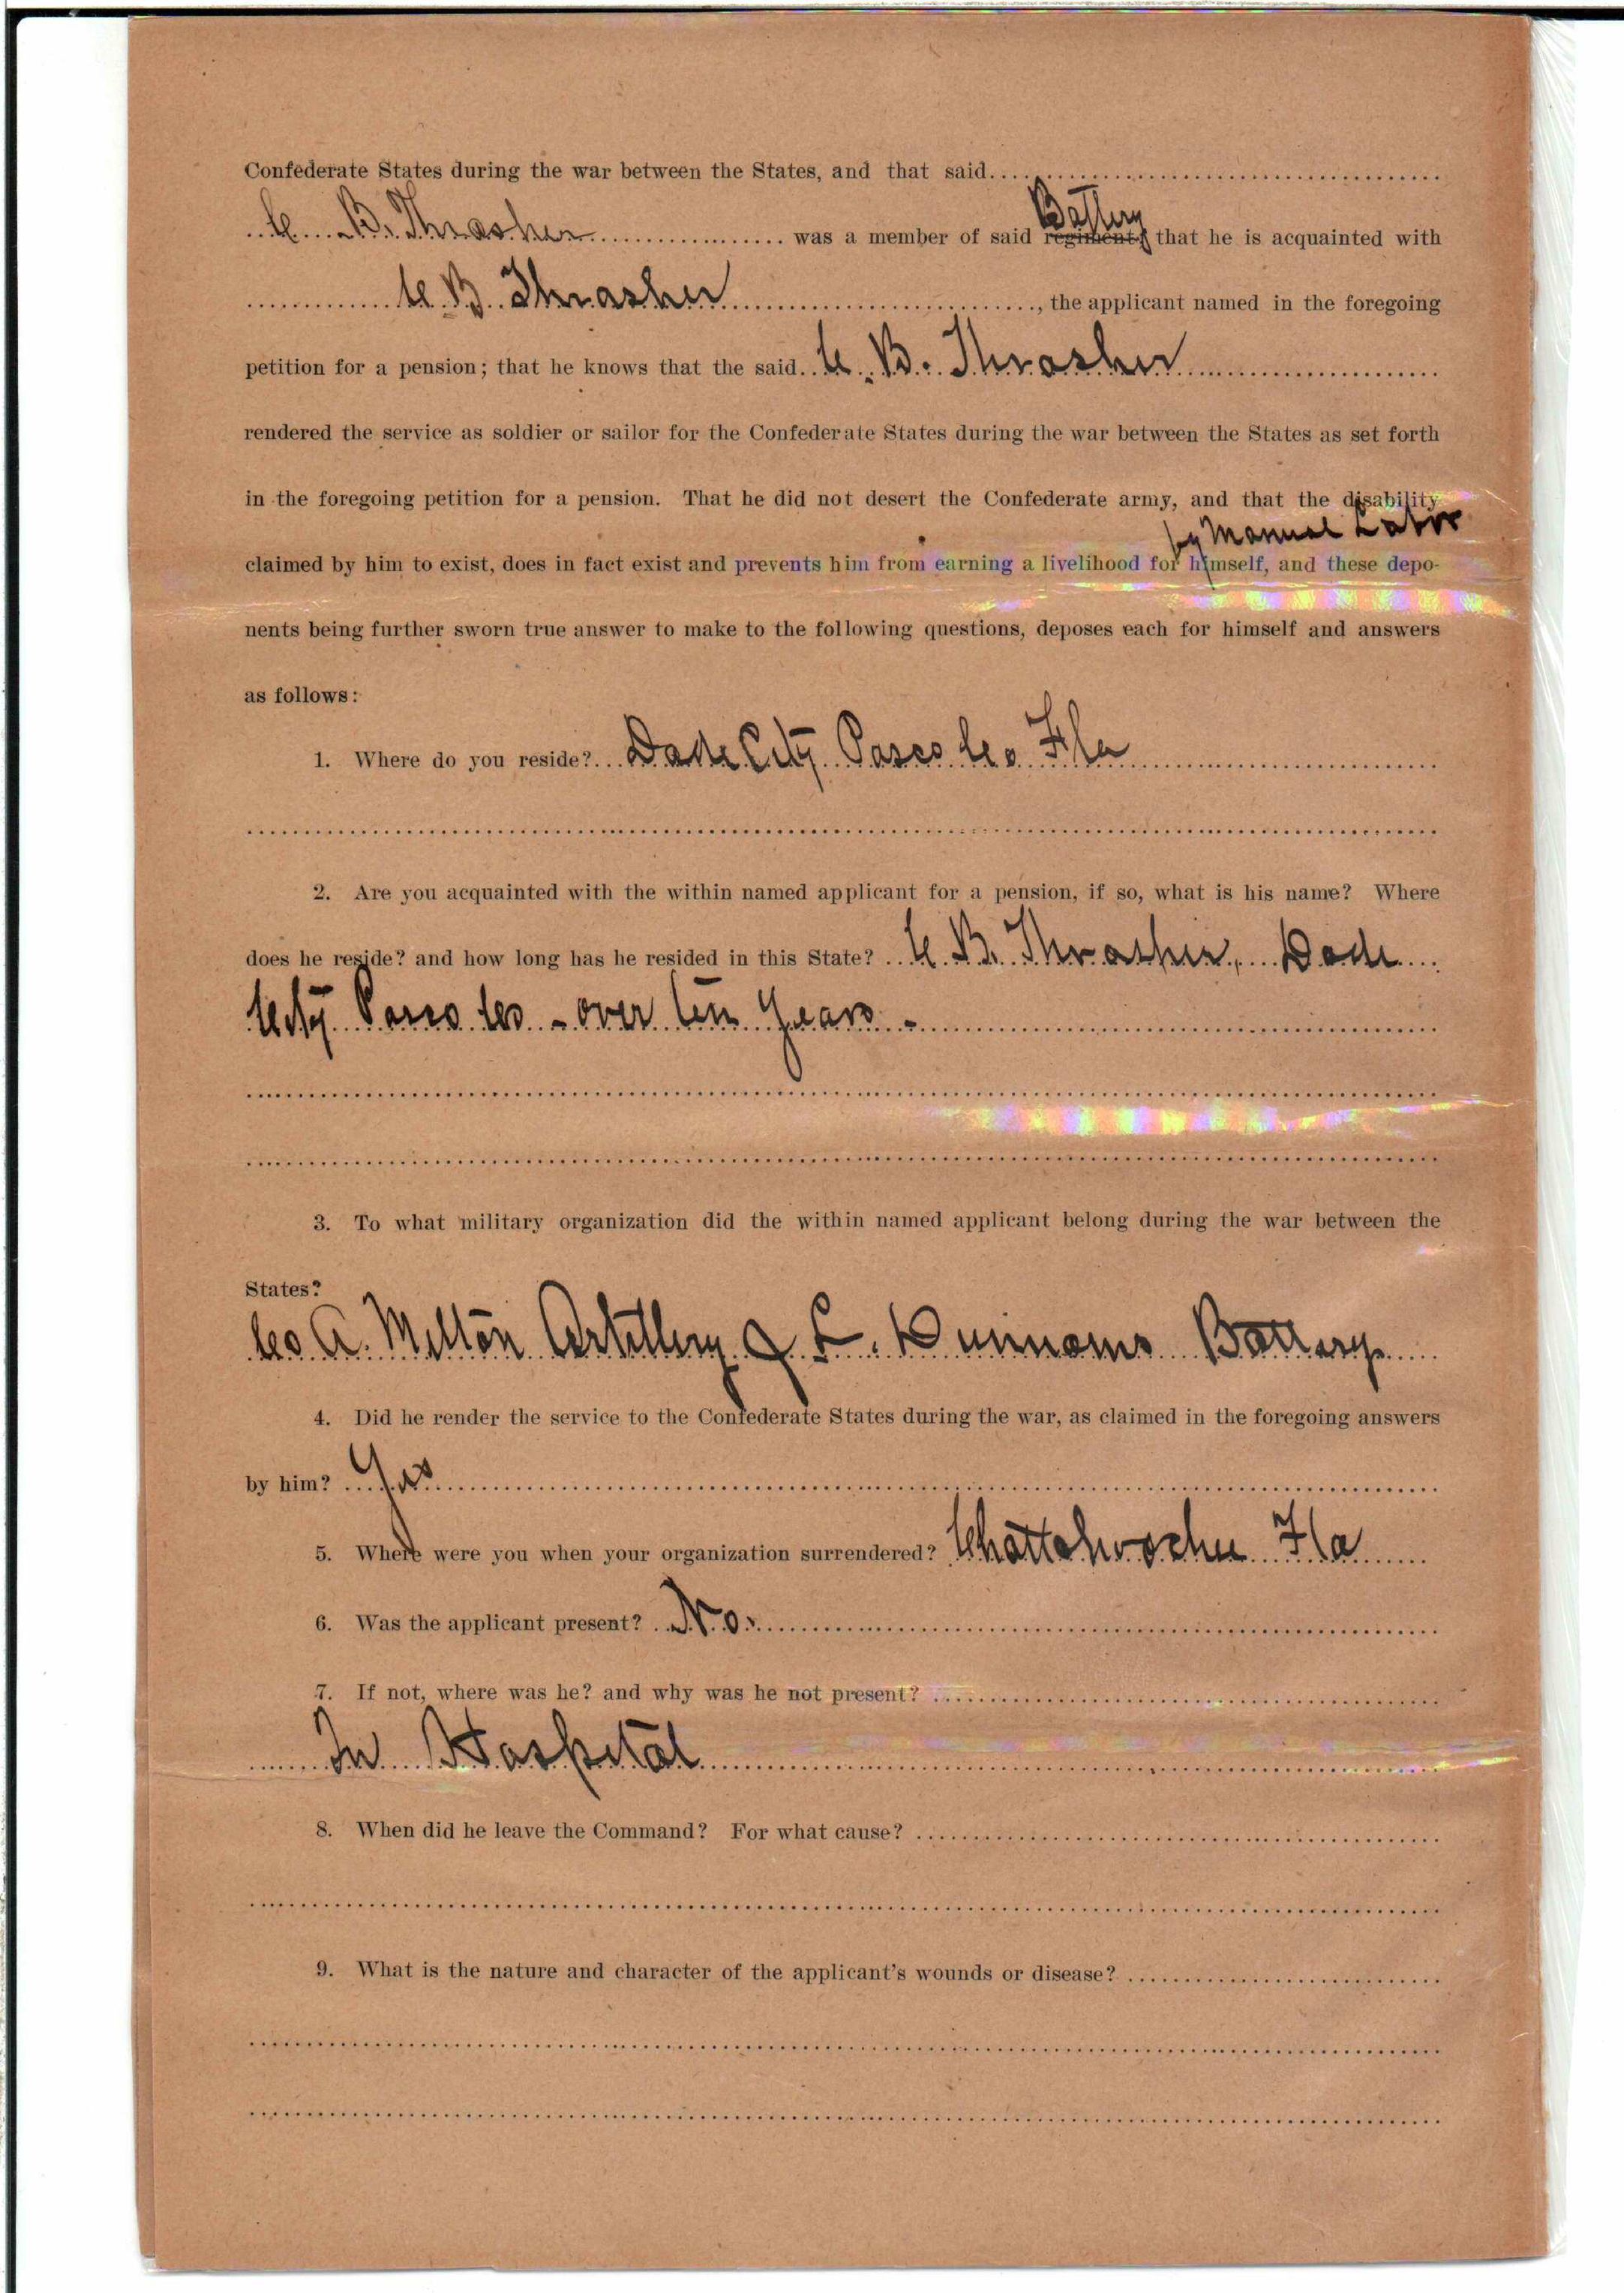 Confederate States during the war between the States, and that said
C. B. Thrasher was a member of said regiment, Battery that he is acquainted with
C. B. Thrasher, the applicant named in the foregoing
petition for a pension; that he knows that the said C. B. Thrasher
rendered the service as soldier or sailor for the Confederate States during the war between the States as set forth
in the foregoing petition for a pension. That he did not desert the Confederate army, and that the disability
by Manual Labor
claimed by him to exist, does in fact exist and prevents him from earning a livelihood for himself, and these depo-
nents being further sworn true answer to make to the following questions, deposes each for himself and answers
as follows:
1. Where do you reside? Dade City Pasco Co Fla
2. Are you acquainted with the within named applicant for a pension, if so, what is his name? Where
does he reside? and how long has he resided in this State? C. B. Thrasher, Dade
City Pasco Co - over ten Years -
3. To what military organization did the within named applicant belong during the war between the
States?
Co A. Milton Artillery J L. Dunhams Battery
4. Did he render the service to the Confederate States during the war, as claimed in the foregoing answers
by him? Yes
5. Where were you when your organization surrendered? Chattahoochee Fla
6. Was the applicant present? No.
7. If not, where was he? and why was he not present?
In Hospital
8. When did he leave the Command? For what cause?
9. What is the nature and character of the applicant's wounds or disease?